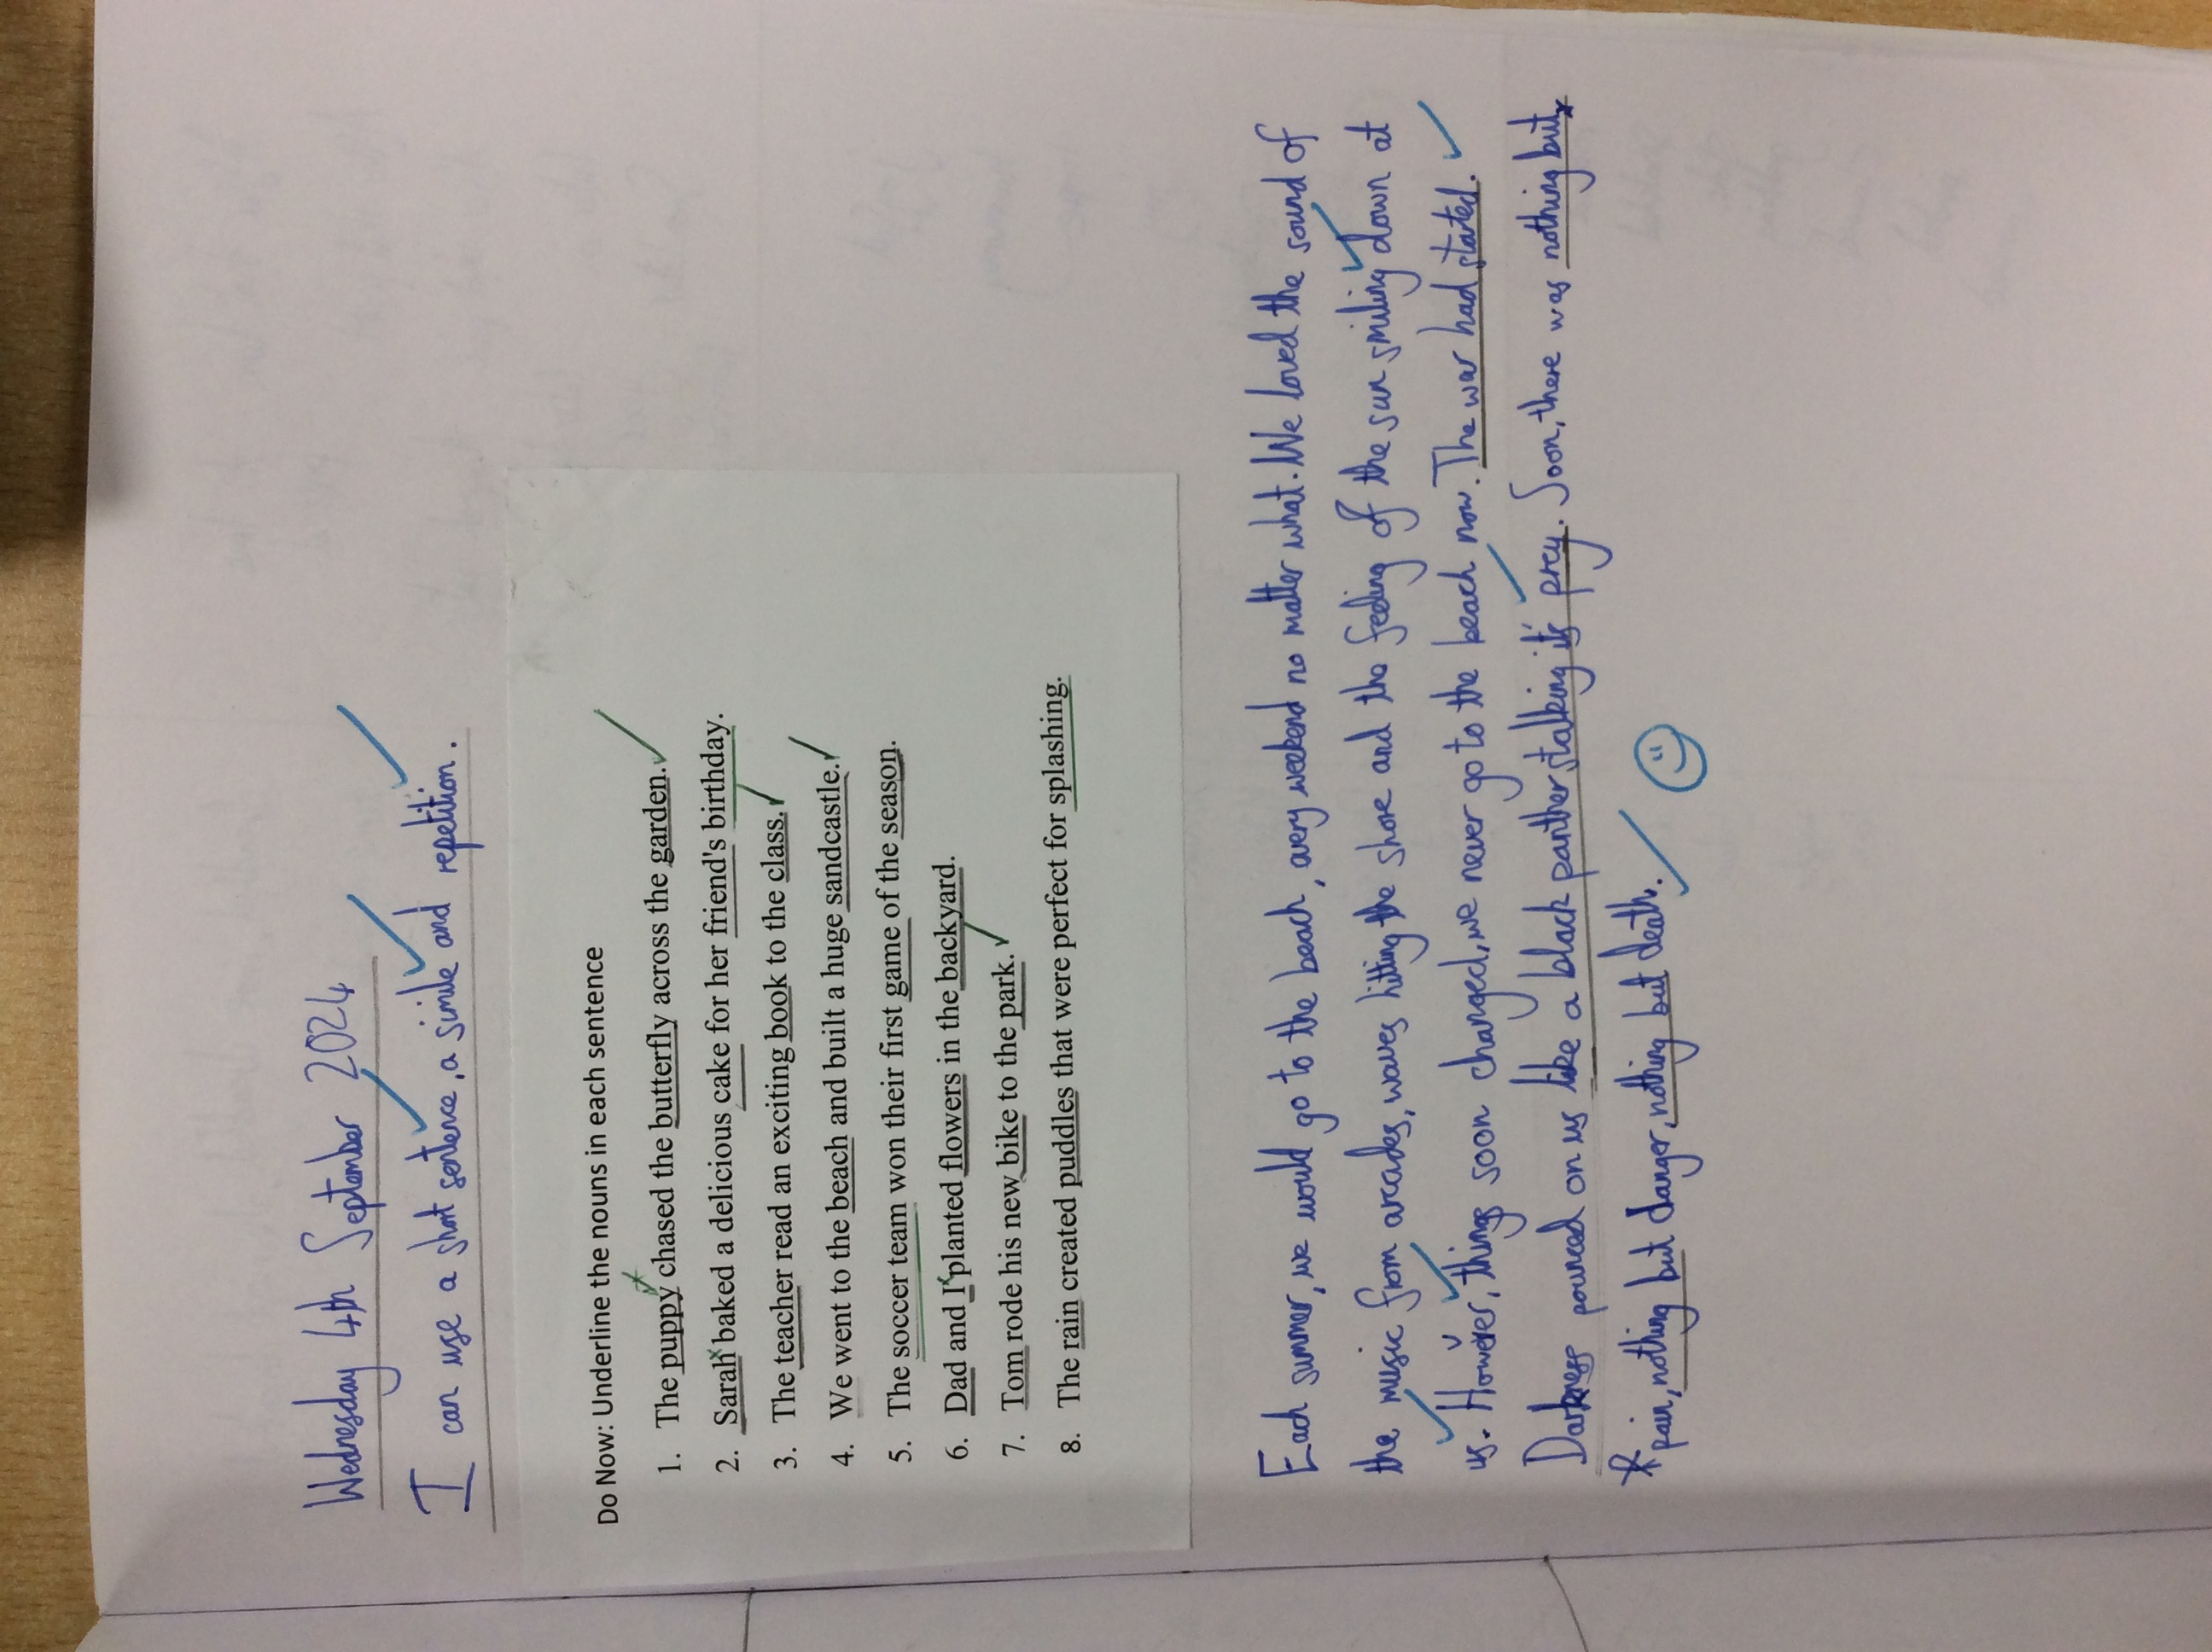 Wednesday 4th September 2024
I can use a short sentence, a simile and repetition.
Do Now: Underline the nouns in each sentence
1. The puppy chased the butterfly across the garden.
2. Sarah baked a delicious cake for her friend's birthday.
3. The teacher read an exciting book to the class.
4. We went to the beach and built a huge sandcastle.
5. The soccer team won their first game of the season.
6. Dad and I planted flowers in the backyard.
7. Tom rode his new bike to the park.
8. The rain created puddles that were perfect for splashing.
Each summer, we would go to the beach, every weekend no matter what. We loved the sound of
the music from arcades, waves hitting the shore and the feeling of the sun smiling down at
us. However, things soon changed, we never go to the beach now. The war had started.
Darkness pounced on us like a black panther stalking it's prey. Soon, there was nothing but
pain, nothing but danger, nothing but death.